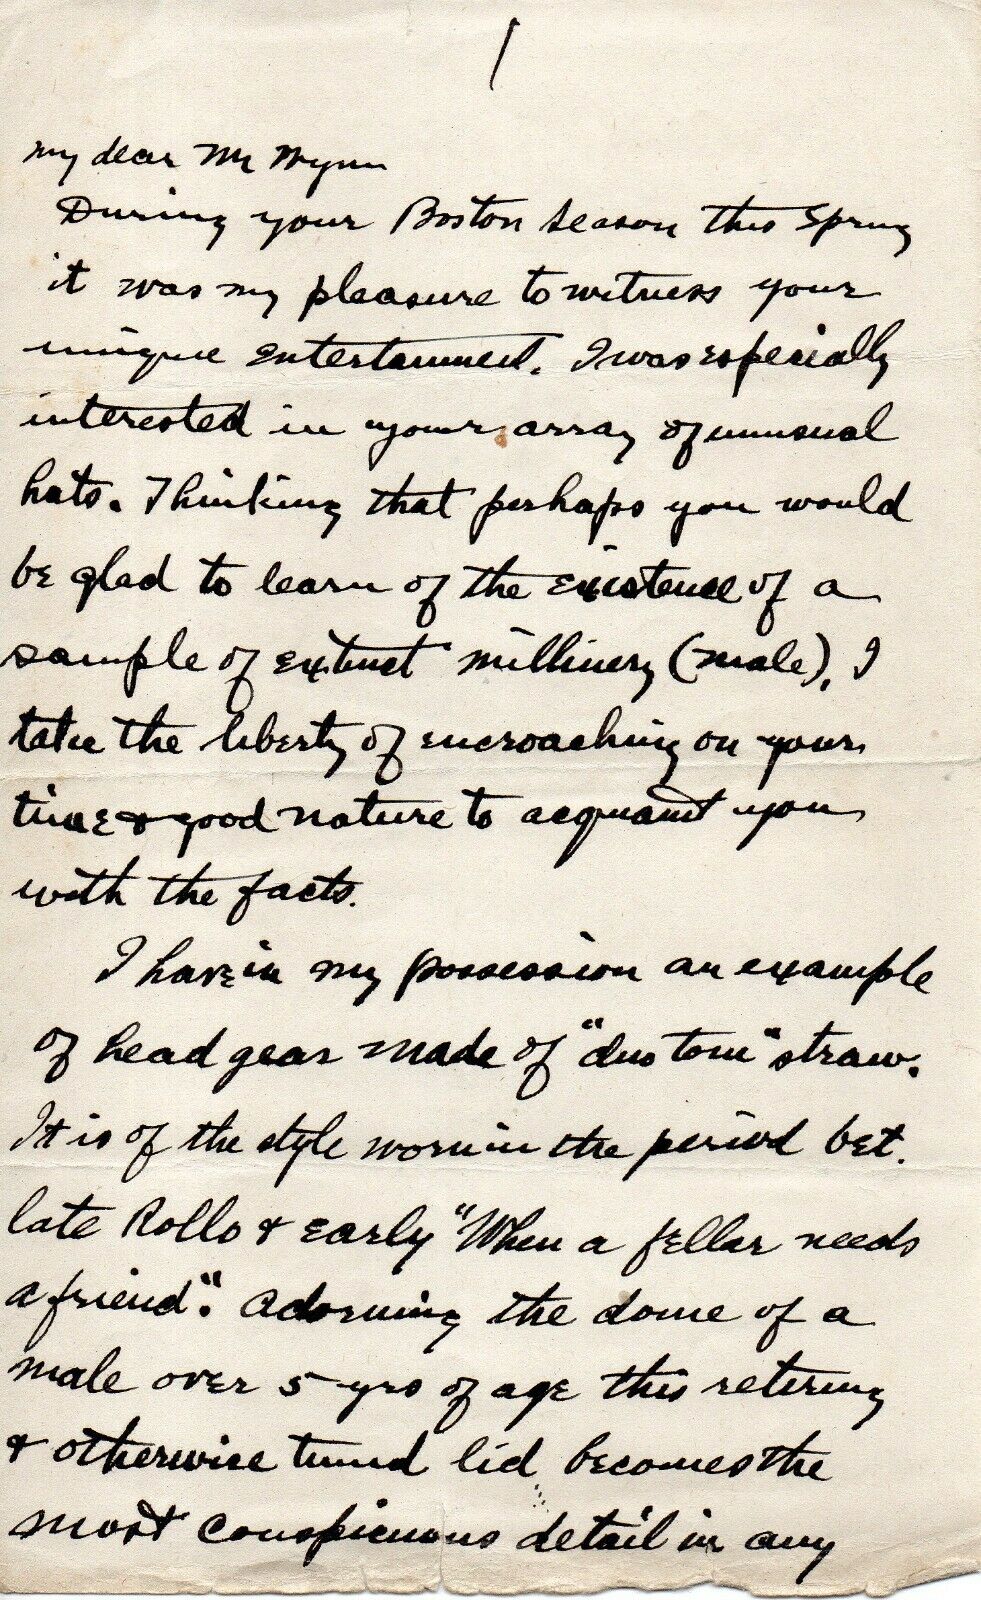 1
My dear Mr Wynn
During your Boston season this Spring
it was my pleasure to witness your
unique entertainment. I was especially
interested in your array of unusual
hats. Thinking that perhaps you would
be glad to learn of the existence of a
sample of extinct millinery (male), I
take the liberty of encroaching on your
time & good nature to acquaint you
with the facts.
I have in my possession an example
of head gear made of "dustom" straw.
It is of the style worn in the period bet.
late Rollo & early "When a fellar needs
a friend". Adorning the dome of a
male over 5 yrs of age this retiring
& otherwise timid lid becomes the
most conspicuous detail in any